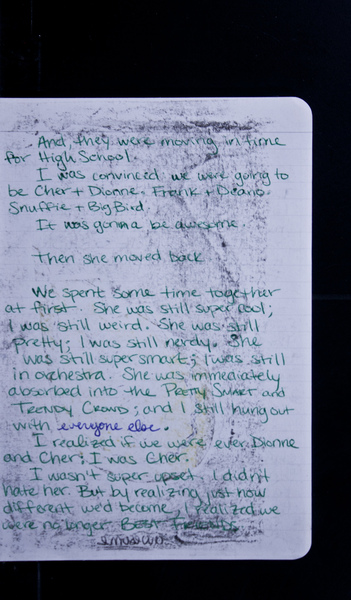 And they were moving in time
for High School.
I was convinced we were going to
be Cher + Dionne. Frank + Deano.
Snuffie + Big Bird.
It was gonna be awesome.
Then she moved back
We spent some time together
at first. She was still super cool;
I was still weird. She was still
pretty; I was still nerdy. She
was still super smart; I was still
in orchestra. She was immediately
absorbed into the PRETTY SMART and
TRENDY CROWD; and I still hung out
with everyone else.
I realized if we were ever Dionne
and Cher; I was Cher.
I wasn't super upset. I didn't
hate her. But by realizing just how
different we'd become, I realized we
were no longer BEST FRIENDS.